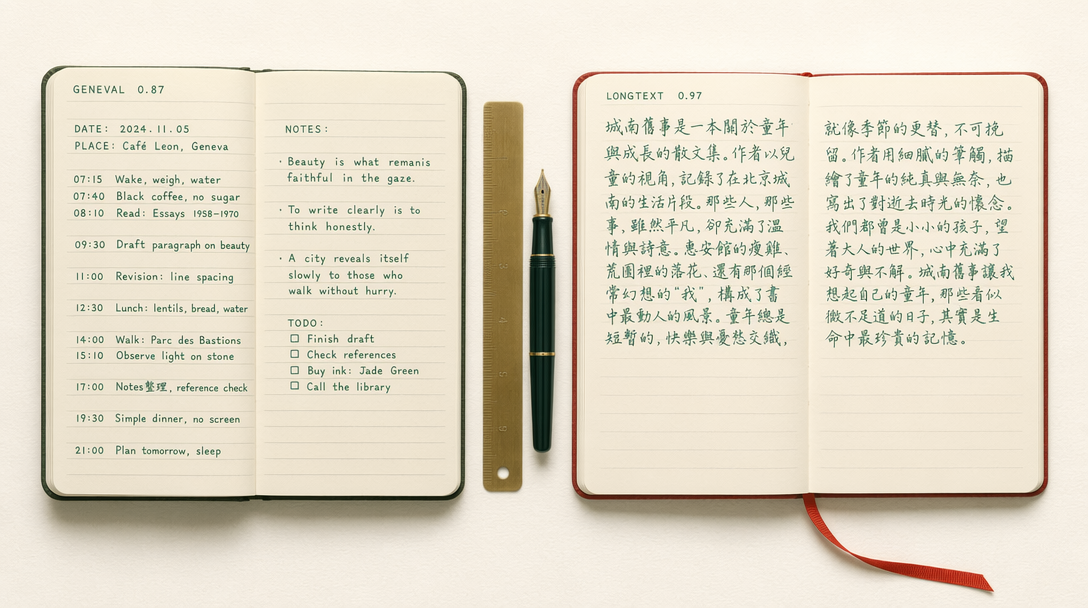 GENEVAL 0.87
DATE: 2024.11.05
PLACE: Café Leon, Geneva
07:15 Wake, weigh, water
07:40 Black coffee, no sugar
08:10 Read: Essays 1958–1970
09:30 Draft paragraph on beauty
11:00 Revision: line spacing
12:30 Lunch: lentils, bread, water
14:00 Walk: Parc des Bastions
15:10 Observe light on stone
17:00 Notes整理, reference check
19:30 Simple dinner, no screen
21:00 Plan tomorrow, sleep
NOTES:
· Beauty is what remanis
faithful in the gaze.
· To write clearly is to
think honestly.
· A city reveals itself
slowly to those who
walk without hurry.
TODO:
☐ Finish draft
☐ Check references
☐ Buy ink: Jade Green
☐ Call the library
LONGTEXT 0.97
城南舊事是一本關於童年
與成長的散文集。作者以兒
童的視角,記錄了在北京城
南的生活片段。那些人,那些
事,雖然平凡,卻充滿了溫
情與詩意。惠安館的瘦雞、
荒園裡的落花、還有那個經
常幻想的“我”,構成了書
中最動人的風景。童年總是
短暫的,快樂與憂愁交織,
就像季節的更替,不可挽
留。作者用細膩的筆觸,描
繪了童年的純真與無奈,也
寫出了對逝去時光的懷念。
我們都曾是小小的孩子,望
著大人的世界,心中充滿了
好奇與不解。城南舊事讓我
想起自己的童年,那些看似
微不足道的日子,其實是生
命中最珍貴的記憶。